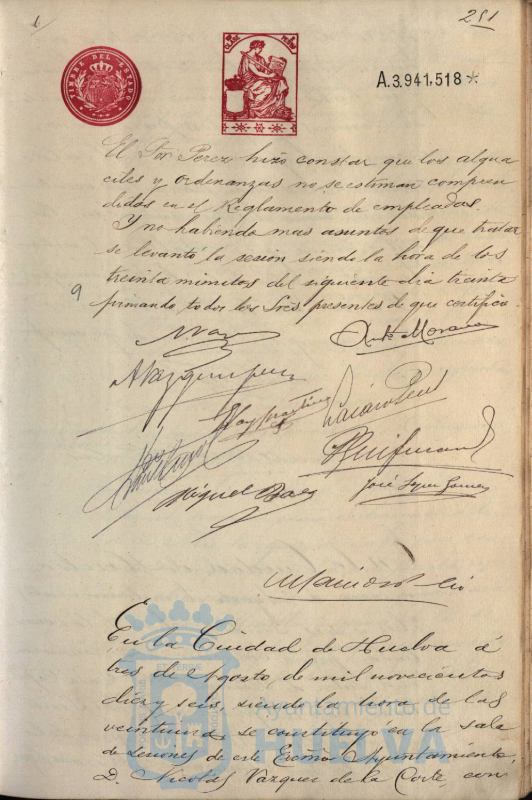 251
TIMBRE DEL ESTADO
CLASE
A.3.941,518*
El Sor Perez hizo constar que los algua
ciles y ordenanzas no se estiman compren
didos en el Reglamento de empleados.
Y no habiendo mas asuntos de que tratar
se levantó la sesion siendo la hora de los
treinta minutos del siguiente dia treinta
firmando todos los Sres presentes de que certifico.
9
Miguel Baez
En la Ciudad de Huelva á
tres de Agosto de mil novecientos
diez y seis, siendo la hora de las
veintiuna se constituyó en la sala
de sesiones de este Excmo Ayuntamiento,
D. Nicolás Vazquez de la Corte, con
Ayuntamiento de
HUELVA